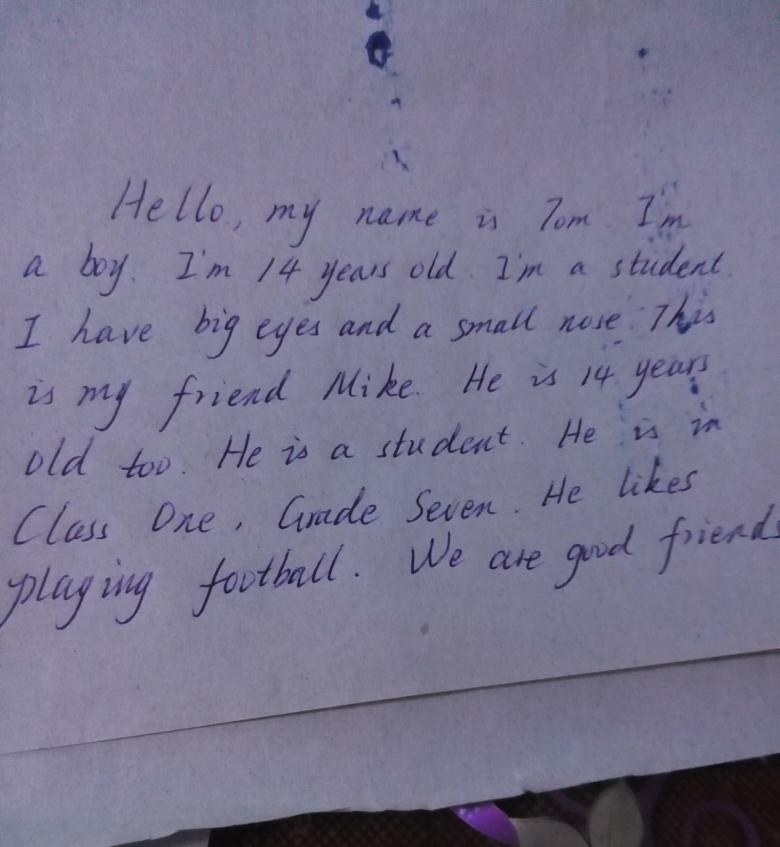 Hello, my name is Tom I'm
a boy. I'm 14 years old. I'm a student.
I have big eyes and a small nose. This
is my friend Mike. He is 14 years
old too. He is a student. He is in
Class One, Grade Seven. He likes
playing football. We are good friends